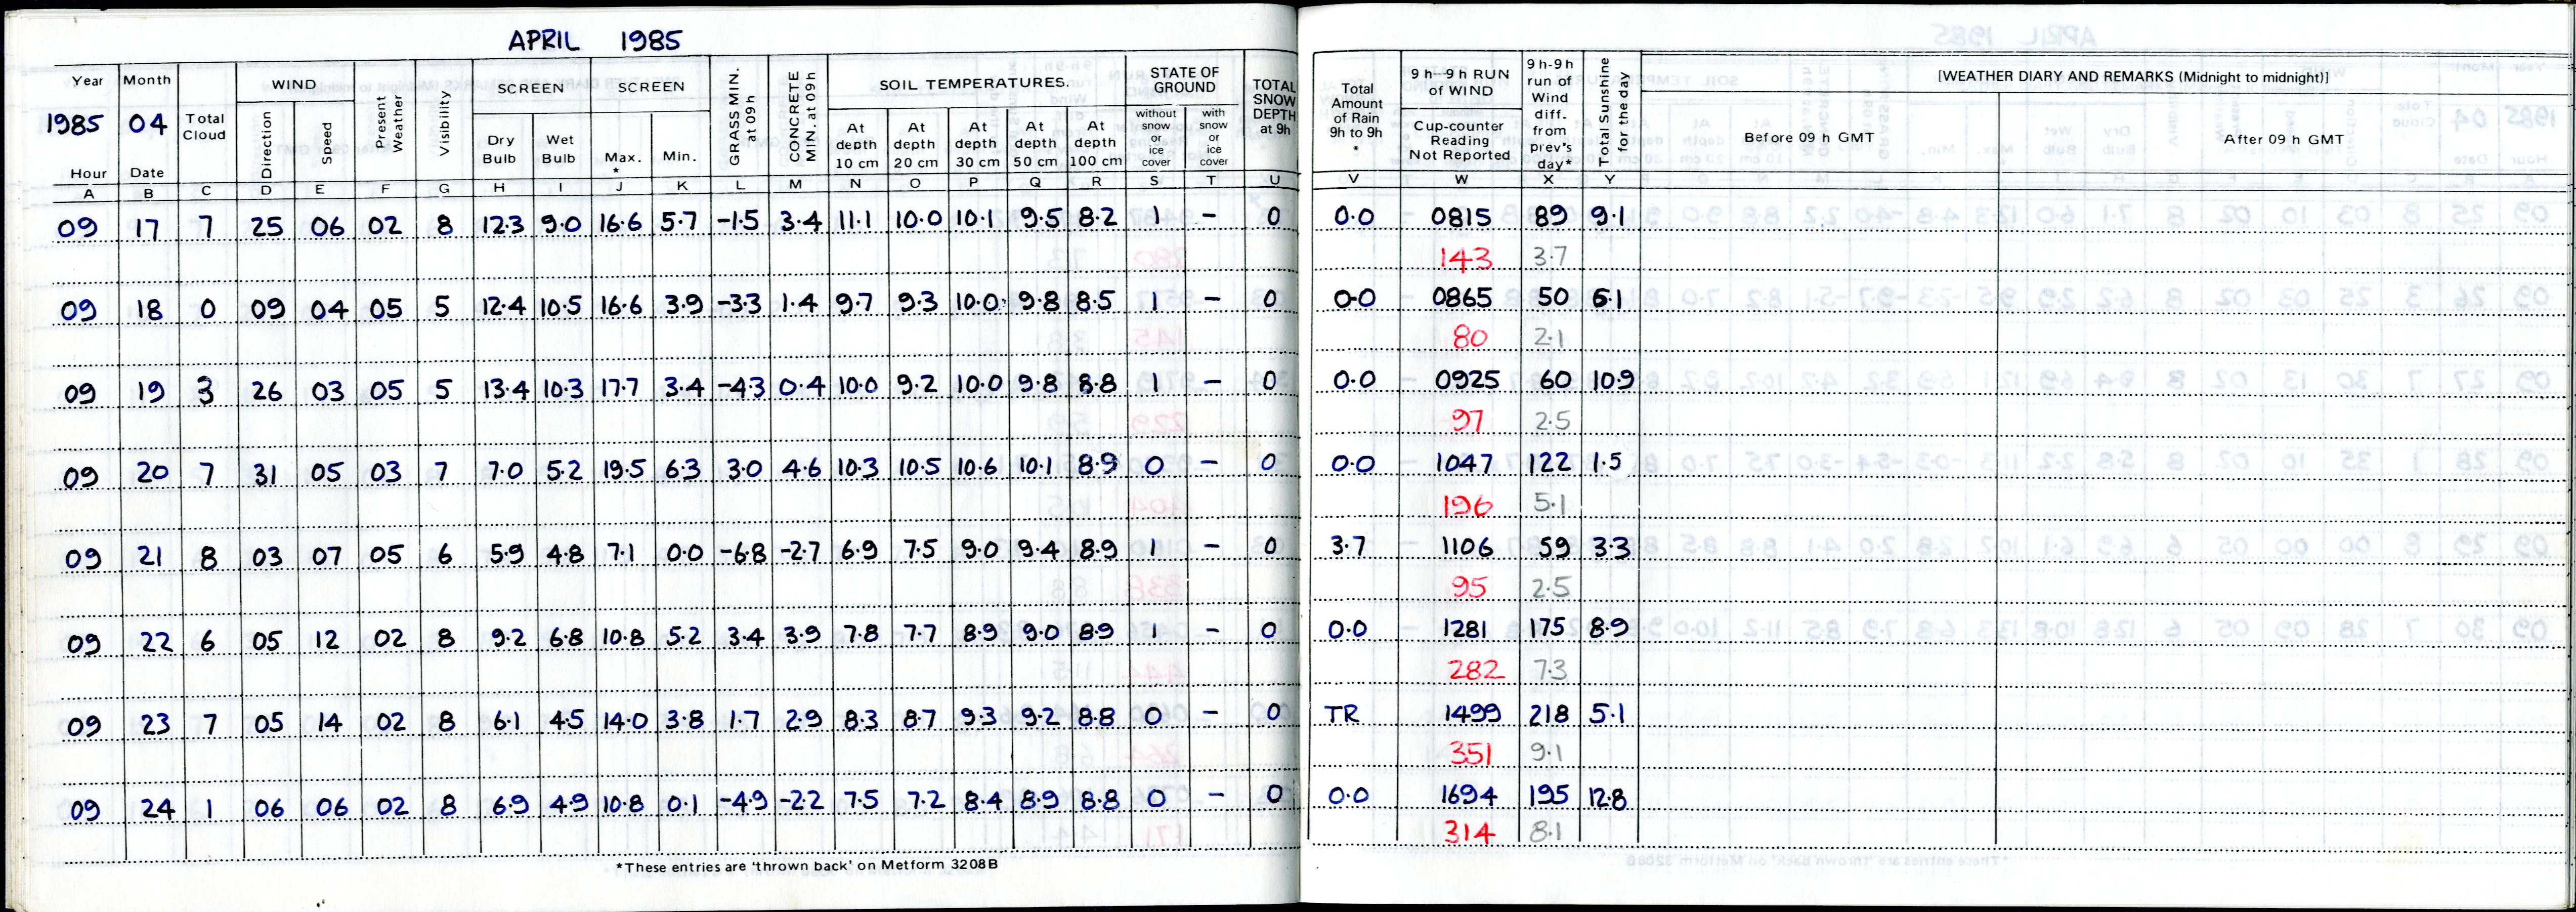 APRIL 1985
Year Month Total Cloud WIND Present Weather Visibility SCREEN SCREEN GRASS MIN. at 09h CONCRETE MIN. at 09h SOIL TEMPERATURES. STATE OF GROUND TOTAL SNOW DEPTH at 9h Total Amount of Rain 9h to 9h * 9 h–9 h RUN of WIND 9 h-9 h run of Wind diff. from prev's day* Total Sunshine for the day [WEATHER DIARY AND REMARKS (Midnight to midnight)]
1985 04 Direction Speed Dry Bulb Wet Bulb Max. * Min. At depth 10 cm At depth 20 cm At depth 30 cm At depth 50 cm At depth 100 cm without snow or ice cover with snow or ice cover Cup-counter Reading Not Reported Before 09 h GMT After 09 h GMT
Hour Date
A B C D E F G H I J K L M N O P Q R S T U V W X Y
09 17 7 25 06 02 8 12·3 9·0 16·6 5·7 -1·5 3·4 11·1 10·0 10·1 9·5 8·2 1 – 0 0·0 0815 89 9·1
143 3·7
09 18 0 09 04 05 5 12·4 10·5 16·6 3·9 -3·3 1·4 9·7 9·3 10·0 9·8 8·5 1 – 0 0·0 0865 50 6·1
80 2·1
09 19 3 26 03 05 5 13·4 10·3 17·7 3·4 -4·3 0·4 10·0 9·2 10·0 9·8 8·8 1 – 0 0·0 0925 60 10·9
97 2·5
09 20 7 31 05 03 7 7·0 5·2 19·5 6·3 3·0 4·6 10·3 10·5 10·6 10·1 8·9 0 – 0 0·0 1047 122 1·5
196 5·1
09 21 8 03 07 05 6 5·9 4·8 7·1 0·0 -6·8 -2·7 6·9 7·5 9·0 9·4 8·9 1 – 0 3·7 1106 59 3·3
95 2·5
09 22 6 05 12 02 8 9·2 6·8 10·8 5·2 3·4 3·9 7·8 7·7 8·9 9·0 8·9 1 – 0 0·0 1281 175 8·9
282 7·3
09 23 7 05 14 02 8 6·1 4·5 14·0 3·8 1·7 2·9 8·3 8·7 9·3 9·2 8·8 0 – 0 TR 1499 218 5·1
351 9·1
09 24 1 06 06 02 8 6·9 4·9 10·8 0·1 -4·9 -2·2 7·5 7·2 8·4 8·9 8·8 0 – 0 0·0 1694 195 12·8
314 8·1
*These entries are 'thrown back' on Metform 3208B